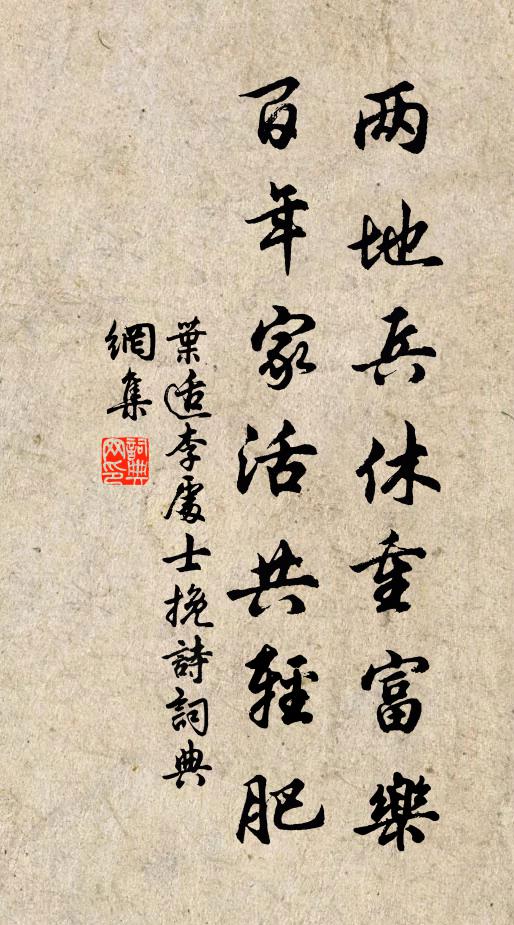 两地兵休重富樂
百年家活共輕肥
葉适李處士挽詩詞典
網集
詞典网印